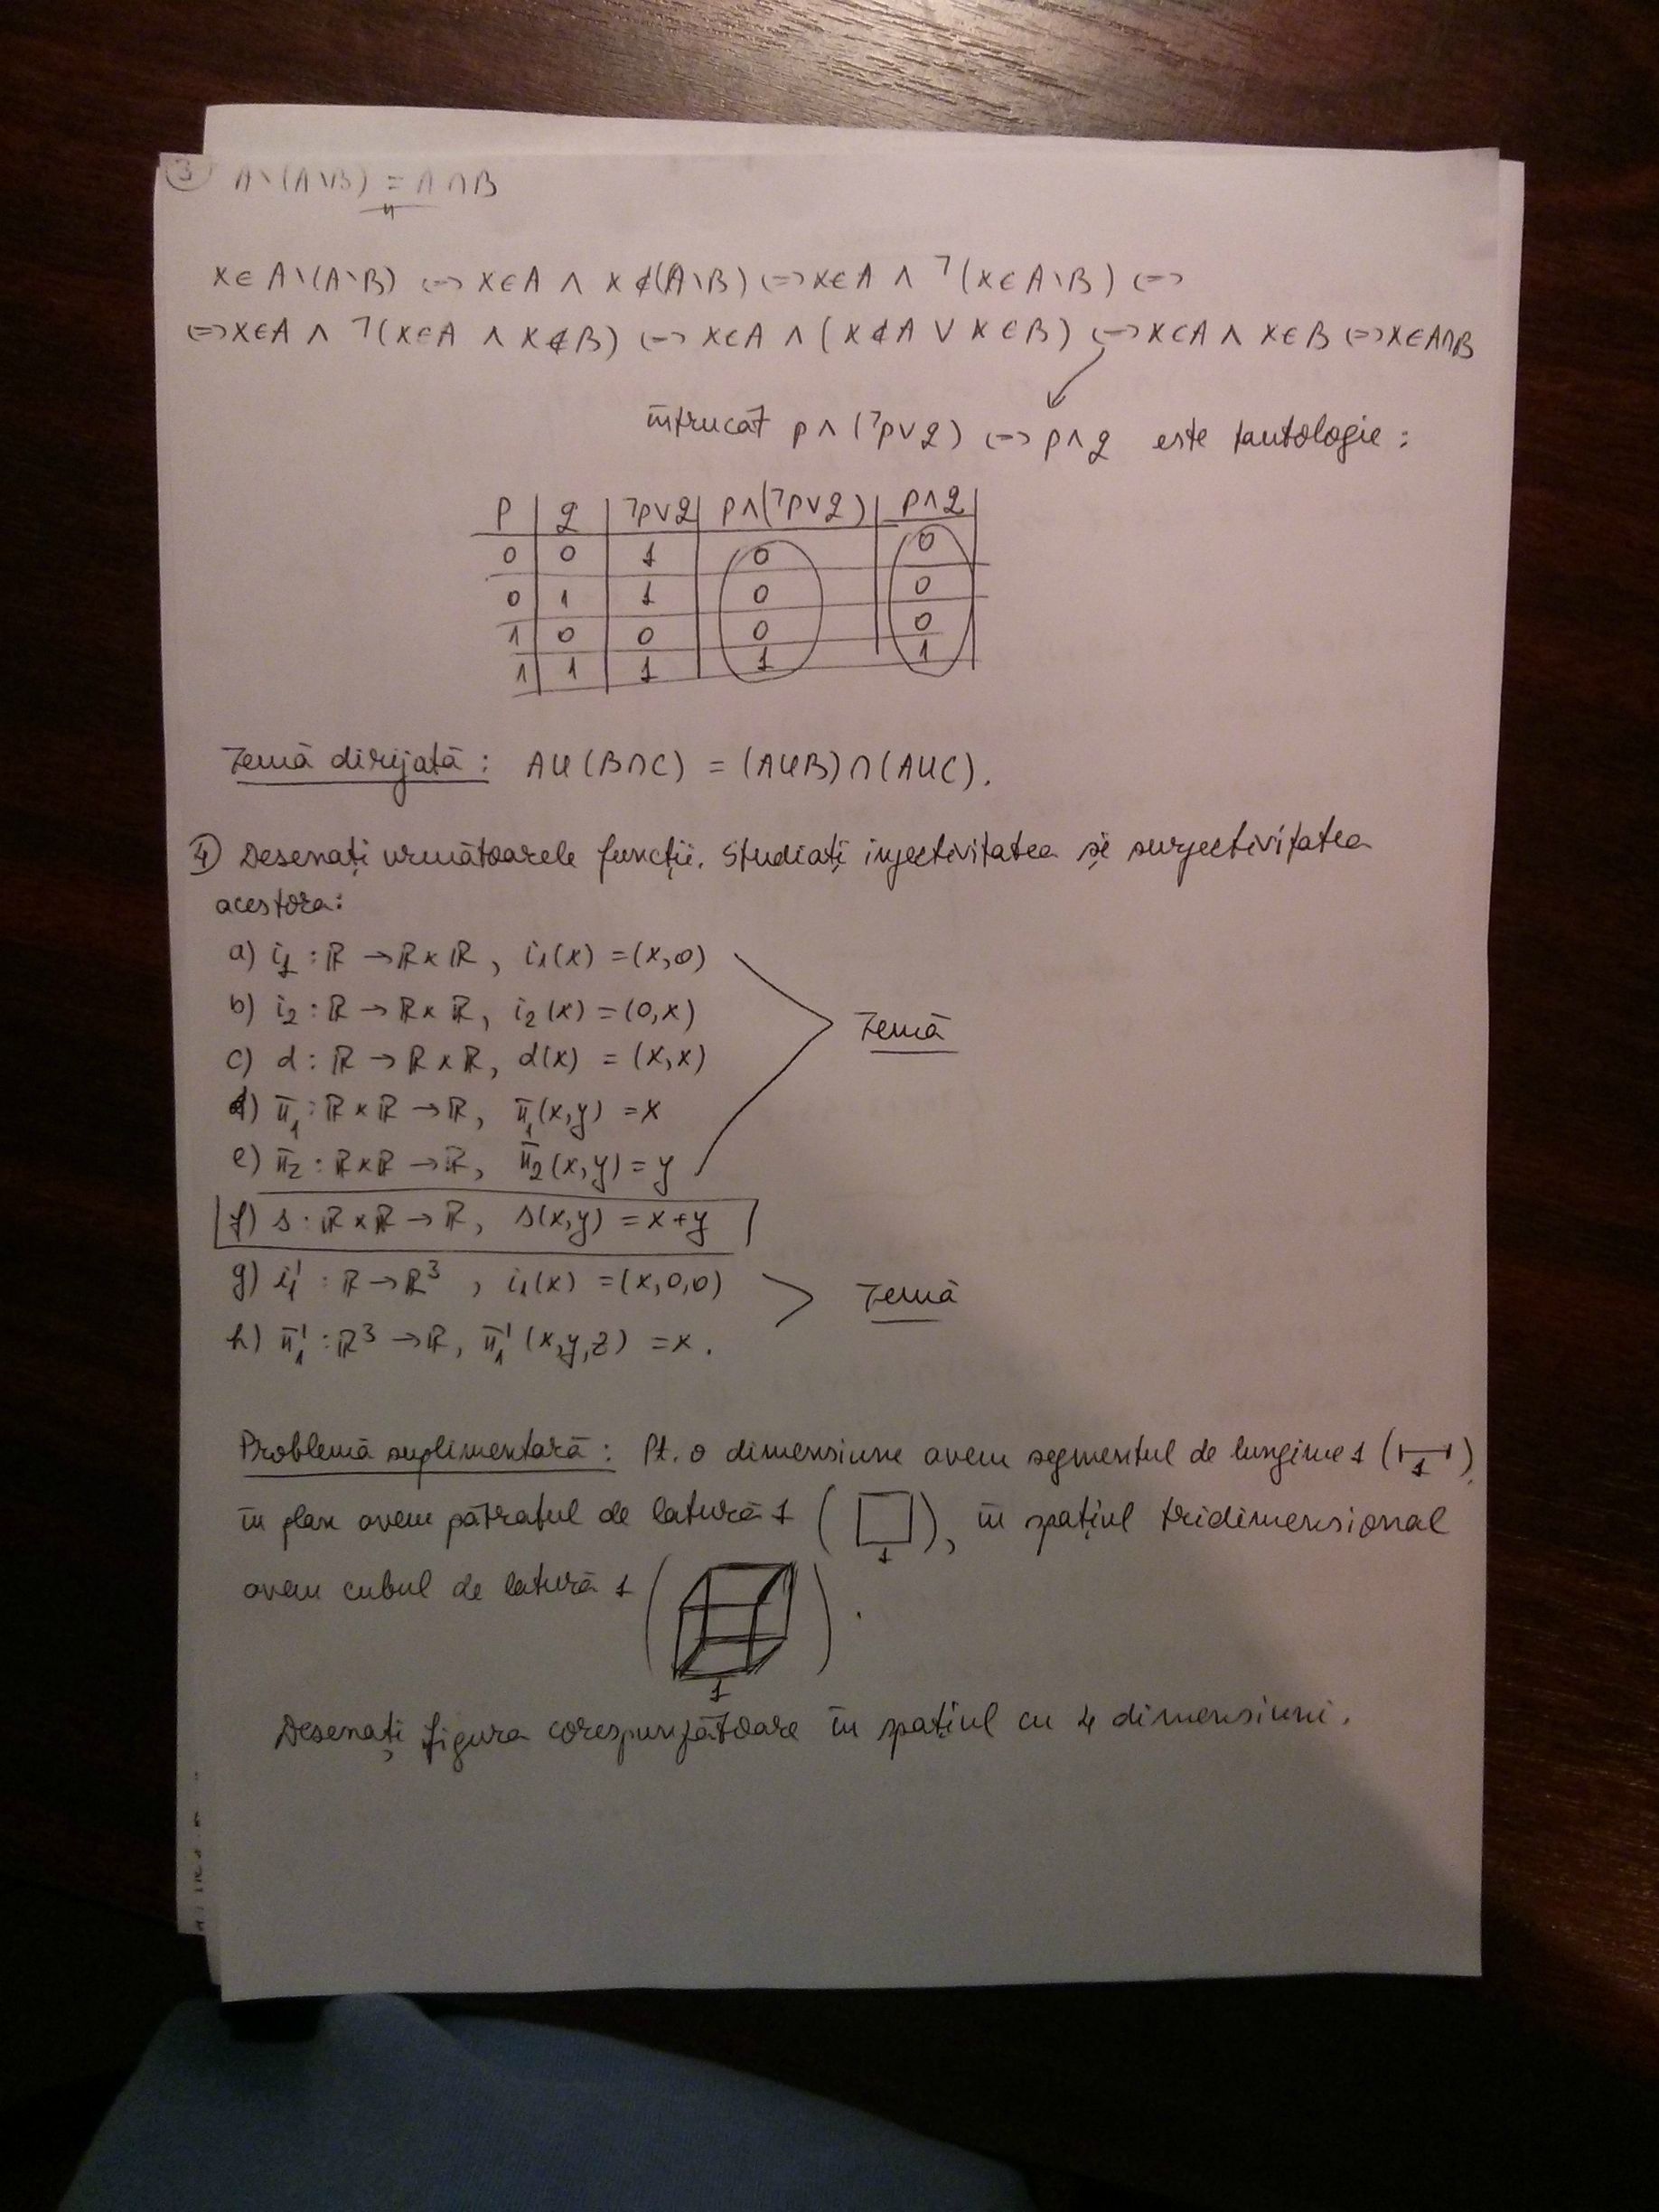 ③ A∖(A∖B) = A∩B
x∈A∖(A∖B) ⇔ x∈A ∧ x∉(A∖B) ⇔ x∈A ∧ ¬(x∈A∖B) ⇔
⇔ x∈A ∧ ¬(x∈A ∧ x∉B) ⇔ x∈A ∧ (x∉A ∨ x∈B) ⇔ x∈A ∧ x∈B ⇔ x∈A∩B
întrucât p∧(¬p∨q) ⇔ p∧q este tautologie:
p q ¬p∨q p∧(¬p∨q) p∧q
0 0 1 0 0
0 1 1 0 0
1 0 0 0 0
1 1 1 1 1
Temă dirijată: A∪(B∩C) = (A∪B)∩(A∪C).
④ Desenați următoarele funcții. Studiați injectivitatea și surjectivitatea
acestora:
a) i₁ : ℝ → ℝ×ℝ, i₁(x) = (x,0)
b) i₂ : ℝ → ℝ×ℝ, i₂(x) = (0,x)
Temă
c) d : ℝ → ℝ×ℝ, d(x) = (x,x)
d) π₁ : ℝ×ℝ → ℝ, π₁(x,y) = x
e) π₂ : ℝ×ℝ → ℝ, π₂(x,y) = y
f) s : ℝ×ℝ → ℝ, s(x,y) = x+y
g) i₁' : ℝ → ℝ³, i₁(x) = (x,0,0)
Temă
h) π₁' : ℝ³ → ℝ, π₁'(x,y,z) = x.
Problemă suplimentară: Pt. o dimensiune avem segmentul de lungime 1 (1),
în plan avem pătratul de latură 1 (1), în spațiul tridimensional
avem cubul de latură 1 (1).
Desenați figura corespunzătoare în spațiul cu 4 dimensiuni.